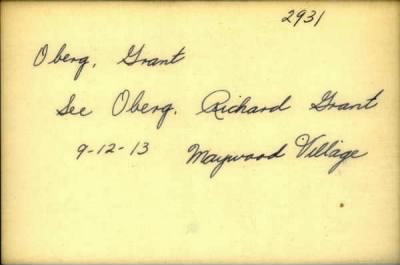 2931
Oberg, Grant
See Oberg, Richard Grant
9-12-13 Maywood Village